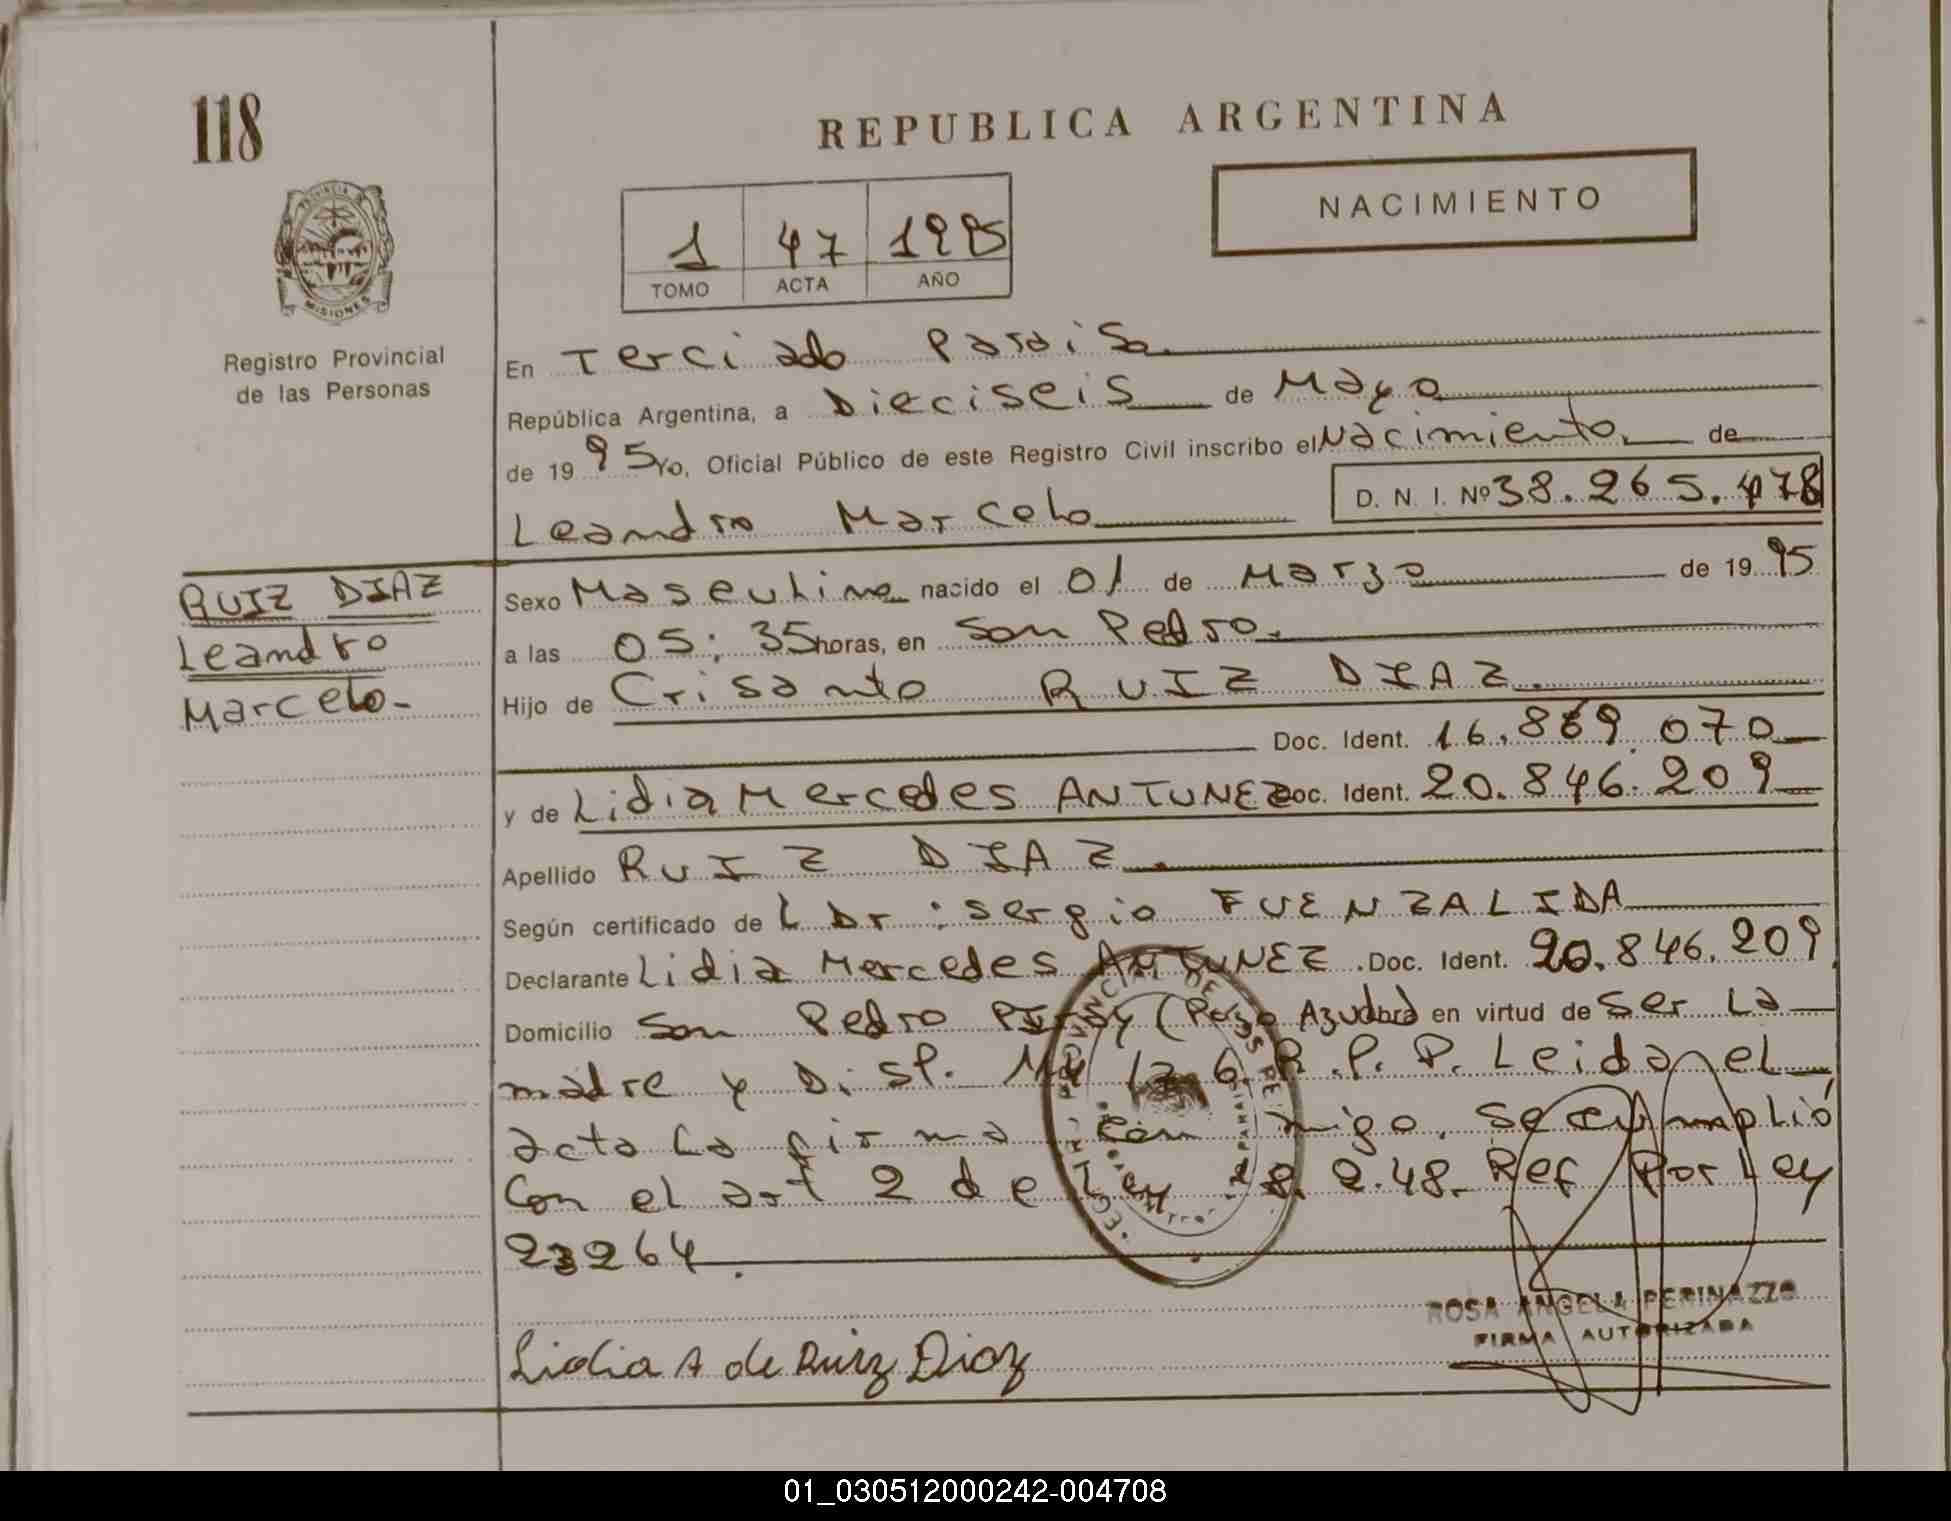 118
REPUBLICA ARGENTINA
NACIMIENTO
1 47 1995
TOMO ACTA AÑO
PROVINCIA DE
MISIONES
Registro Provincial
de las Personas
En Terciado Paraiso
República Argentina, a Dieciseis de Mayo
de 19 95 Yo, Oficial Público de este Registro Civil inscribo el Nacimiento de
Leandro Marcelo D. N. I. Nº 38.265.478
RUIZ DIAZ
Leandro
Marcelo-
Sexo Masculino nacido el 01 de Marzo de 19 95
a las 05:35 horas, en San Pedro.
Hijo de Crisanto RUIZ DIAZ.
Doc. Ident. 16.869.070
y de Lidia Mercedes ANTUNEZ Doc. Ident. 20.846.209
Apellido RUIZ DIAZ.
Según certificado de L Dr: Sergio FUENZALIDA
Declarante Lidia Mercedes ANTUNEZ. Doc. Ident. 20.846.209
Domicilio San Pedro (Pozo Azul) en virtud de ser la
madre y Disp. Nº 126 R.P.P. Leida el
acta la firma conmigo. Se cumplió
Con el art 2 de Ley 8.2.48. Ref Por Ley
23264.
Lidia A de Ruiz Diaz
ROSA ANGELA PERINAZZO
FIRMA AUTORIZADA
01_030512000242-004708